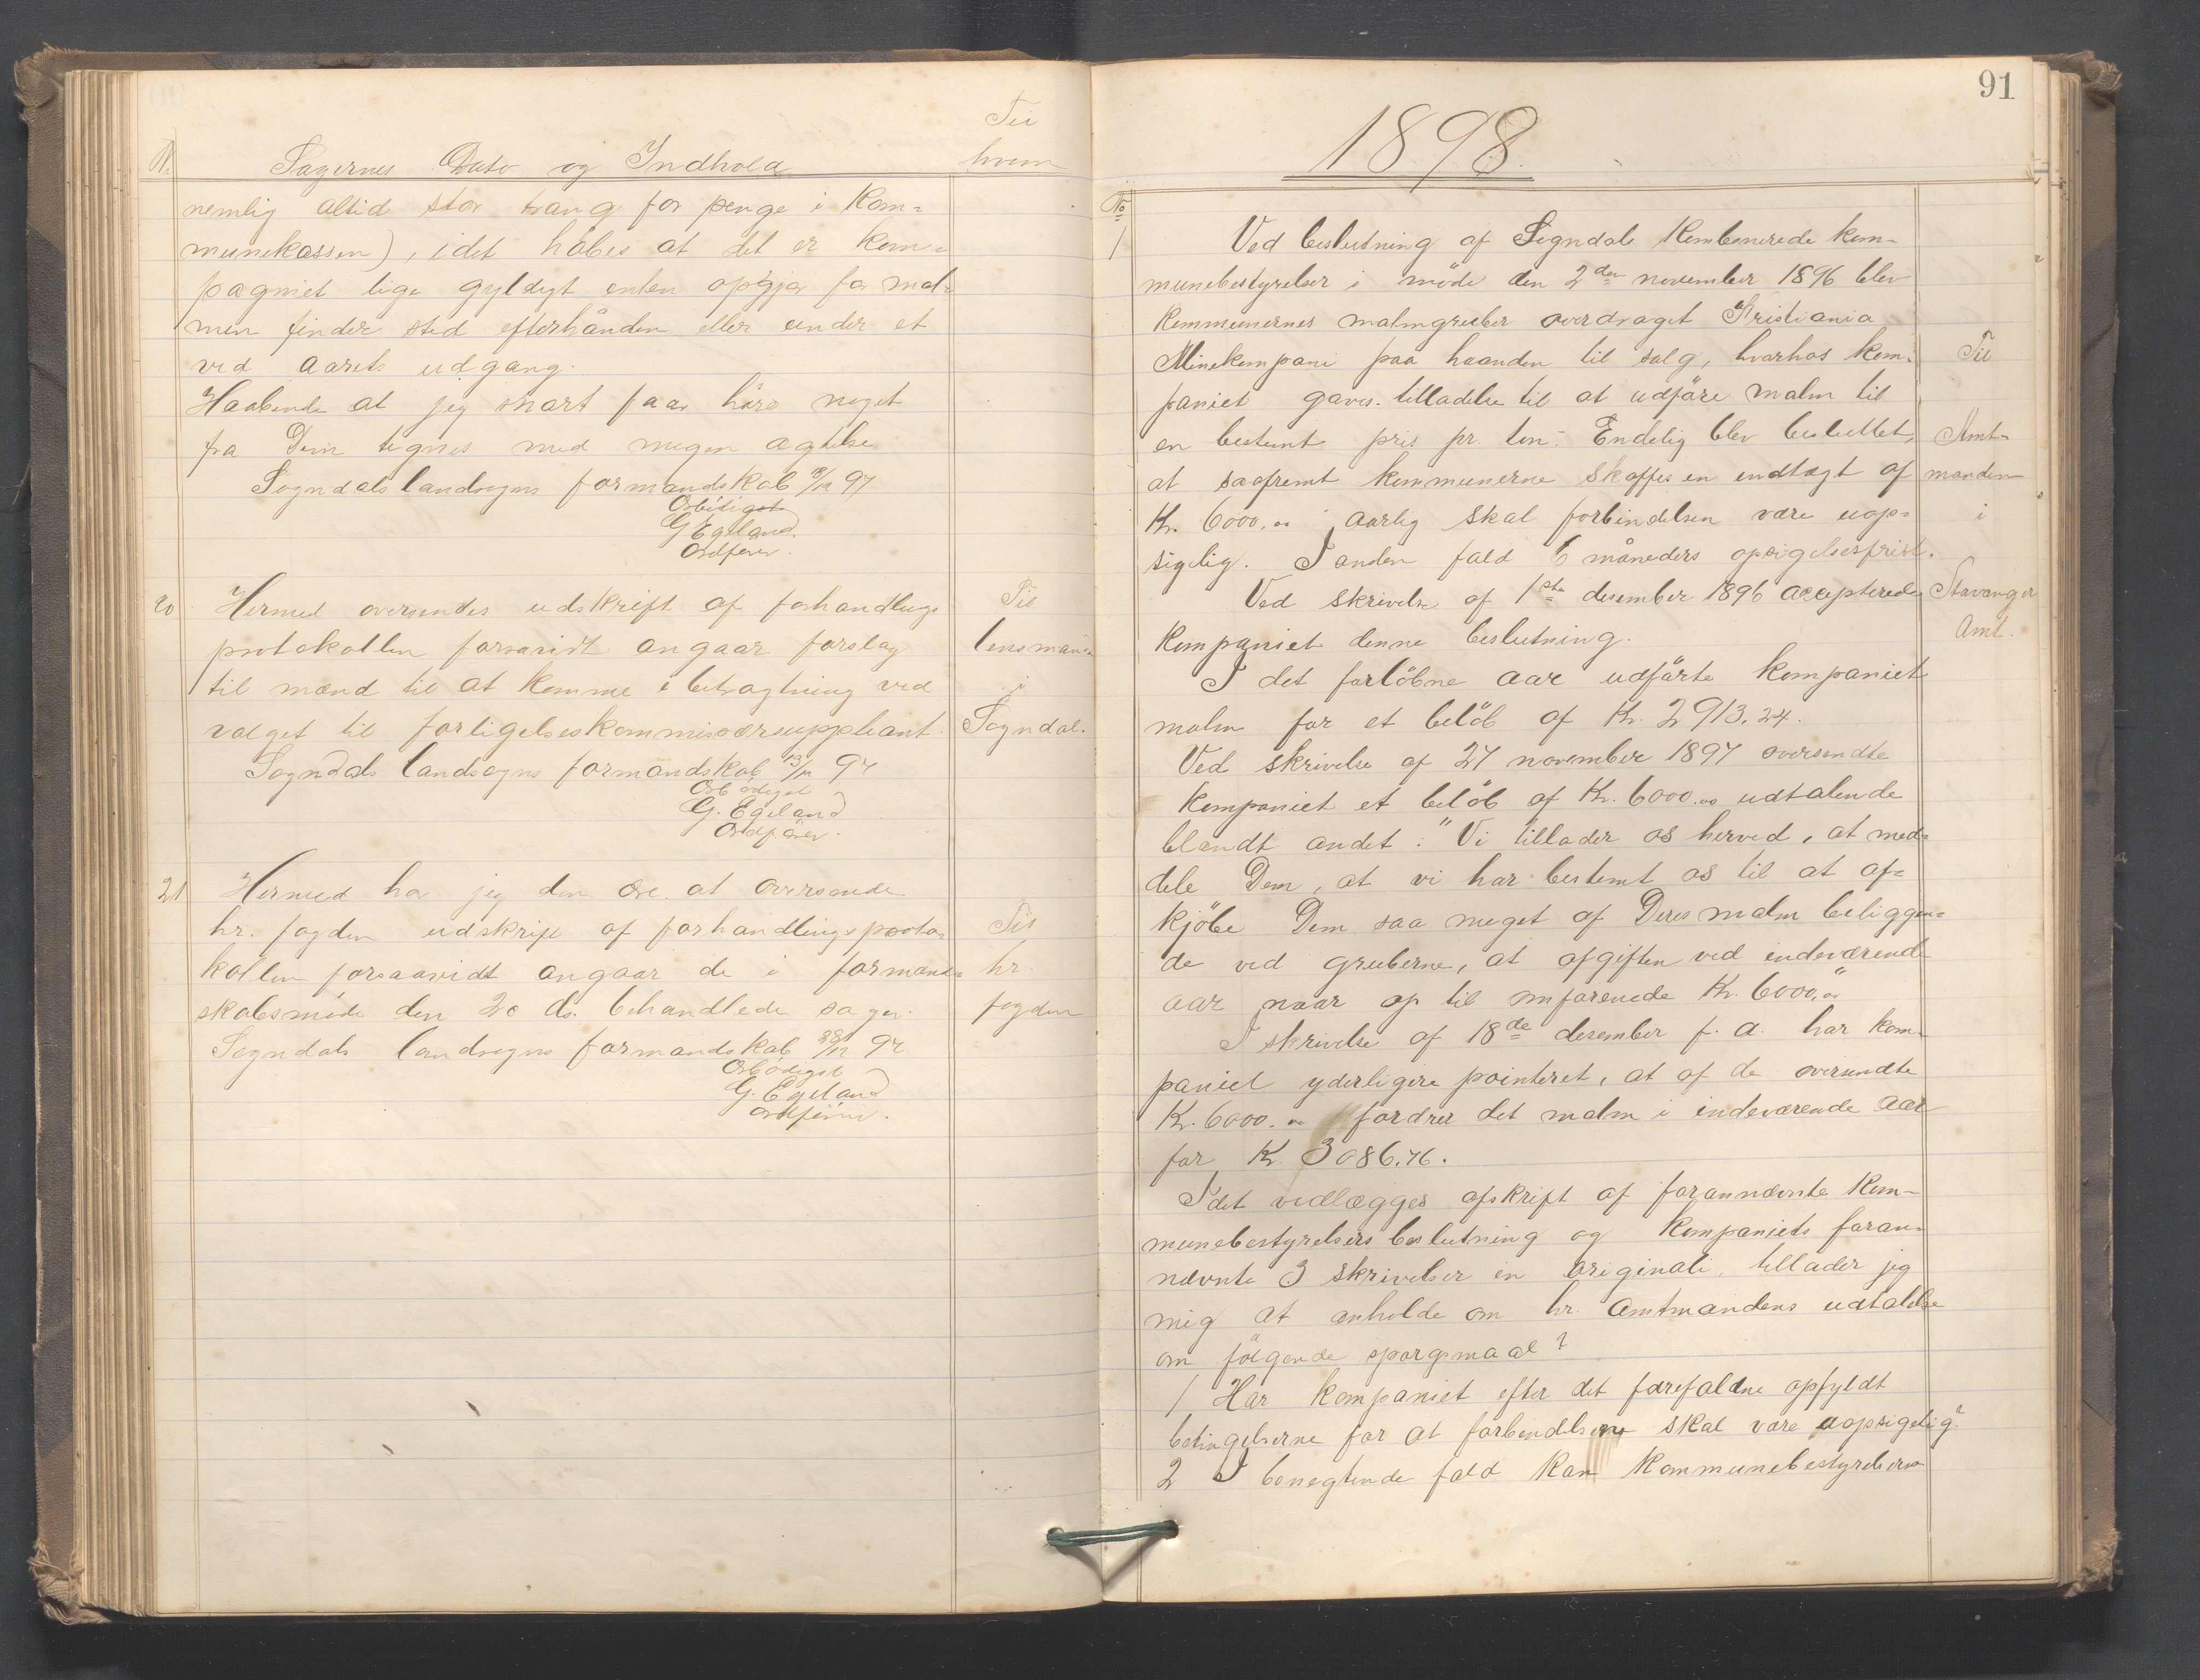 Til
N. Sagernes Dato og Indhold hvem
nemlig altid stor trang for penge i kom=
munekassen), idet håbes at det er kom=
pagniet lige gyldigt enten opgjør for mal=
men finder sted efterhånden eller under et
ved aarets udgang.
Haabende at jeg snart faar høre noget
fra Dem tegnes med megen agtelse
Sogndals landsogns formandskab /12 97
Ærbödigst
G Egeland.
Ordfører.
20 Hermed oversendes udskrift af forhandlings
protokollen forsavidt angaar forslag
til mænd til at komme i betragtning ved
valget til forligelseskommissærsuppleant.
Til
lensman=
i
Sogndal.
Sogndals landsogns formandskab 13/12 97
Ærbödigst
G. Egeland
Ordförer.
21 Hermed har jeg den ære at oversende
hr. fogden udskrift af forhandlingsproto=
kollen forsaavidt angaar de i formand=
skabsmöde den 20 ds. behandlede sager.
Til
hr.
fogden
Sogndals landsogns formandskab 28/12 97
Ærbödigst
G. Egeland
ordförer.
91
1898.
No
1 Ved beslutning af Sogndals kombinerede kom=
munebestyrelser i möde den 2den november 1896 blev
kommunernes malmgruber overdraget Kristiania
Minekompani paa haanden til salg, hvorhos kom=
paniet gaves tilladelse til at udföre malm til
en bestemt pris pr. ton. Endelig blev besluttet,
at saafremt kommunerne skaffes en indtægt af
Kr. 6000.00 aarlig skal forbindelsen være uop=
sigelig. I anden fald 6 måneders opsigelsesfrist.
Til
Amt=
manden
i
Stavanger
Amt.
Ved skrivelse af 1ste desember 1896 accepterede
kompaniet denne beslutning.
I det forlöbne aar udförte kompaniet
malm for et belöb af Kr. 2913.24.
Ved skrivelse af 27 november 1897 oversendte
kompaniet et belöb af Kr. 6000.00 udtalende
blandt andet: "Vi tillader os herved, at med=
dele Dem, at vi har bestemt os til at af=
kjöbe Dem saa meget af Deres malm beliggen=
de ved gruberne, at afgiften ved indeværende
aar naar op til omforenede Kr. 6000,00"
I skrivelse af 18de desember f. a. har kom=
paniet yderligere pointeret, at af de oversendte
Kr. 6000.00 fordrer det malm i indeværende aar
for Kr. 3086.76.
Idet vedlægges afskrift af forannævnte kom=
munebestyrelsers beslutning og kompaniets foran=
nævnte 3 skrivelser in originali, tillader jeg
mig at anholde om hr. amtmandens udtalelse
om fölgende spørgsmaal?
1 Har kompaniet efter det forefaldne opfyldt
betingelserne for at forbindelsene skal være uopsigelig?
2 I benegtende fald kan kommunebestyrelserne